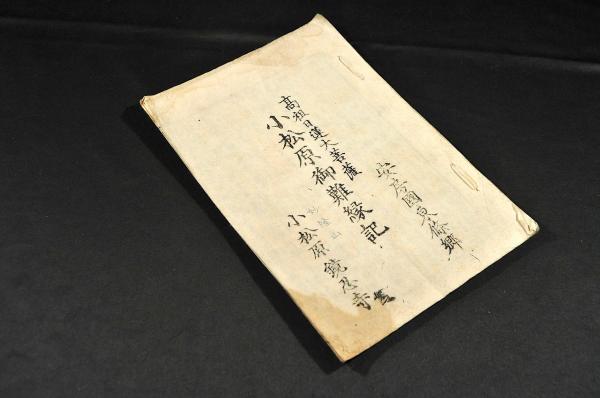 安房國東條郷
高祖日蓮大菩薩
小松原御難縁記
小松原鏡忍寺